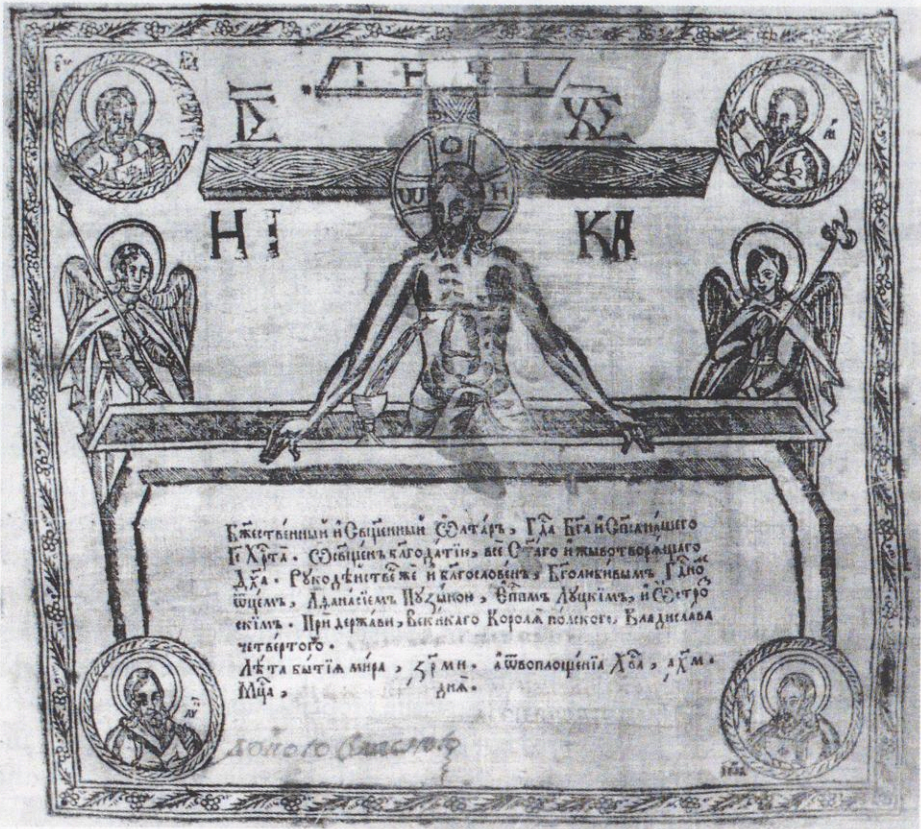 І Н Ц І
ІС ХС
Ѡ О Н
НІ КА
Бж҃ественный и Свщ҃енный Ѿлтарь, Гд҃а Бг҃а и Сп҃са нашего
Іс Хр҃та. Ѡсвщ҃енъ благодатїю, все Ст҃аго и жывотворящаго
Дх҃а. Рукодѣйстве же и благословенъ, Бг҃олюбивымъ Гд҃номъ
ѿцемъ, Афанасїемъ Пузыною, Еп҃помъ Луцкимъ, и Ѡстро
скимъ. При державѣ, Великаго Короля полского, Владислава
четвертого.
Лѣта бытїя мира, ҂зр҃ми. а ѿ воплощенїя Хв҃а, ҂ах҃м.
Мц҃а, дня.